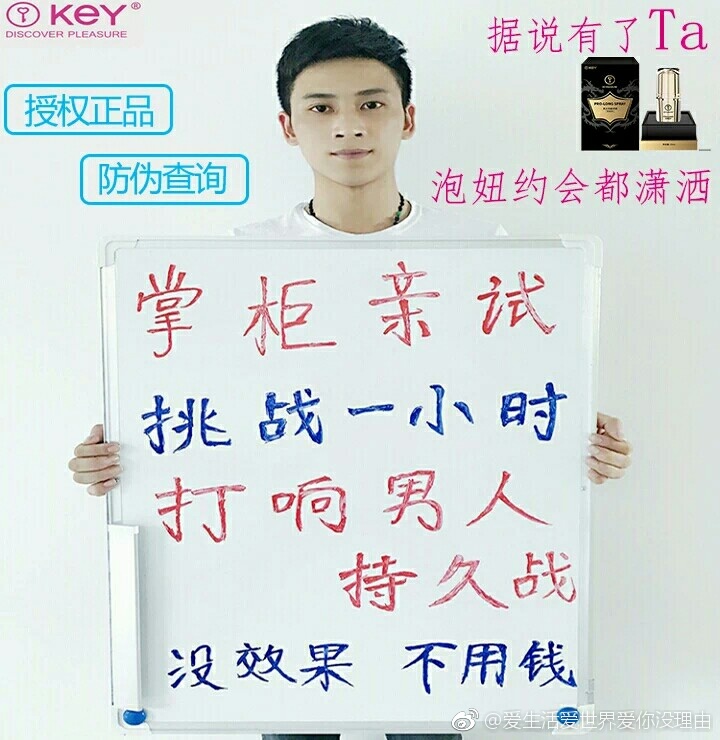 KEY®
DISCOVER PLEASURE
据说有了Ta
KEY
PRO LONG SPRAY
授权正品
防伪查询
泡妞约会都潇洒
掌柜亲试
挑战一小时
打响男人
持久战
没效果 不用钱
@爱生活爱世界爱你没理由